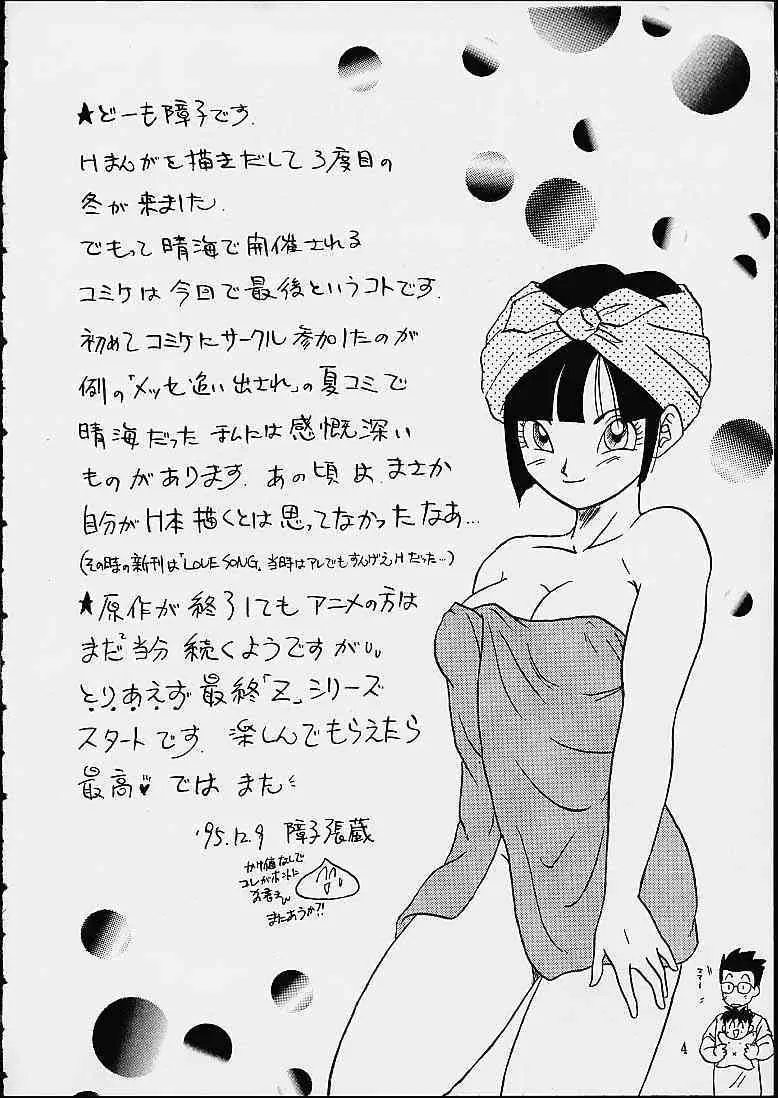 ★どーも障子です.
Hまんがを描きだして3度目の
冬が来ました.
でもって晴海で開催される
コミケは今回で最後というコトです.
初めてコミケにサークル参加したのが
例の「メッセ追い出され」の夏コミで
晴海だったまんには感慨深い
ものがあります. あの頃は、まさか
自分がH本描くとは思ってなかったなあ…
(その時の新刊は「LOVE SONG. 当時はアレでもすんげえHだった…)
★原作が終了してもアニメの方は
まだ当分続くようですが
とりあえず最終「Z」シリーズ
スタートです. 楽しんでもらえたら
最高♥ では また
'95.12.9 障子張蔵
かけ値なしで
コレがホントに
またあうか?!
4